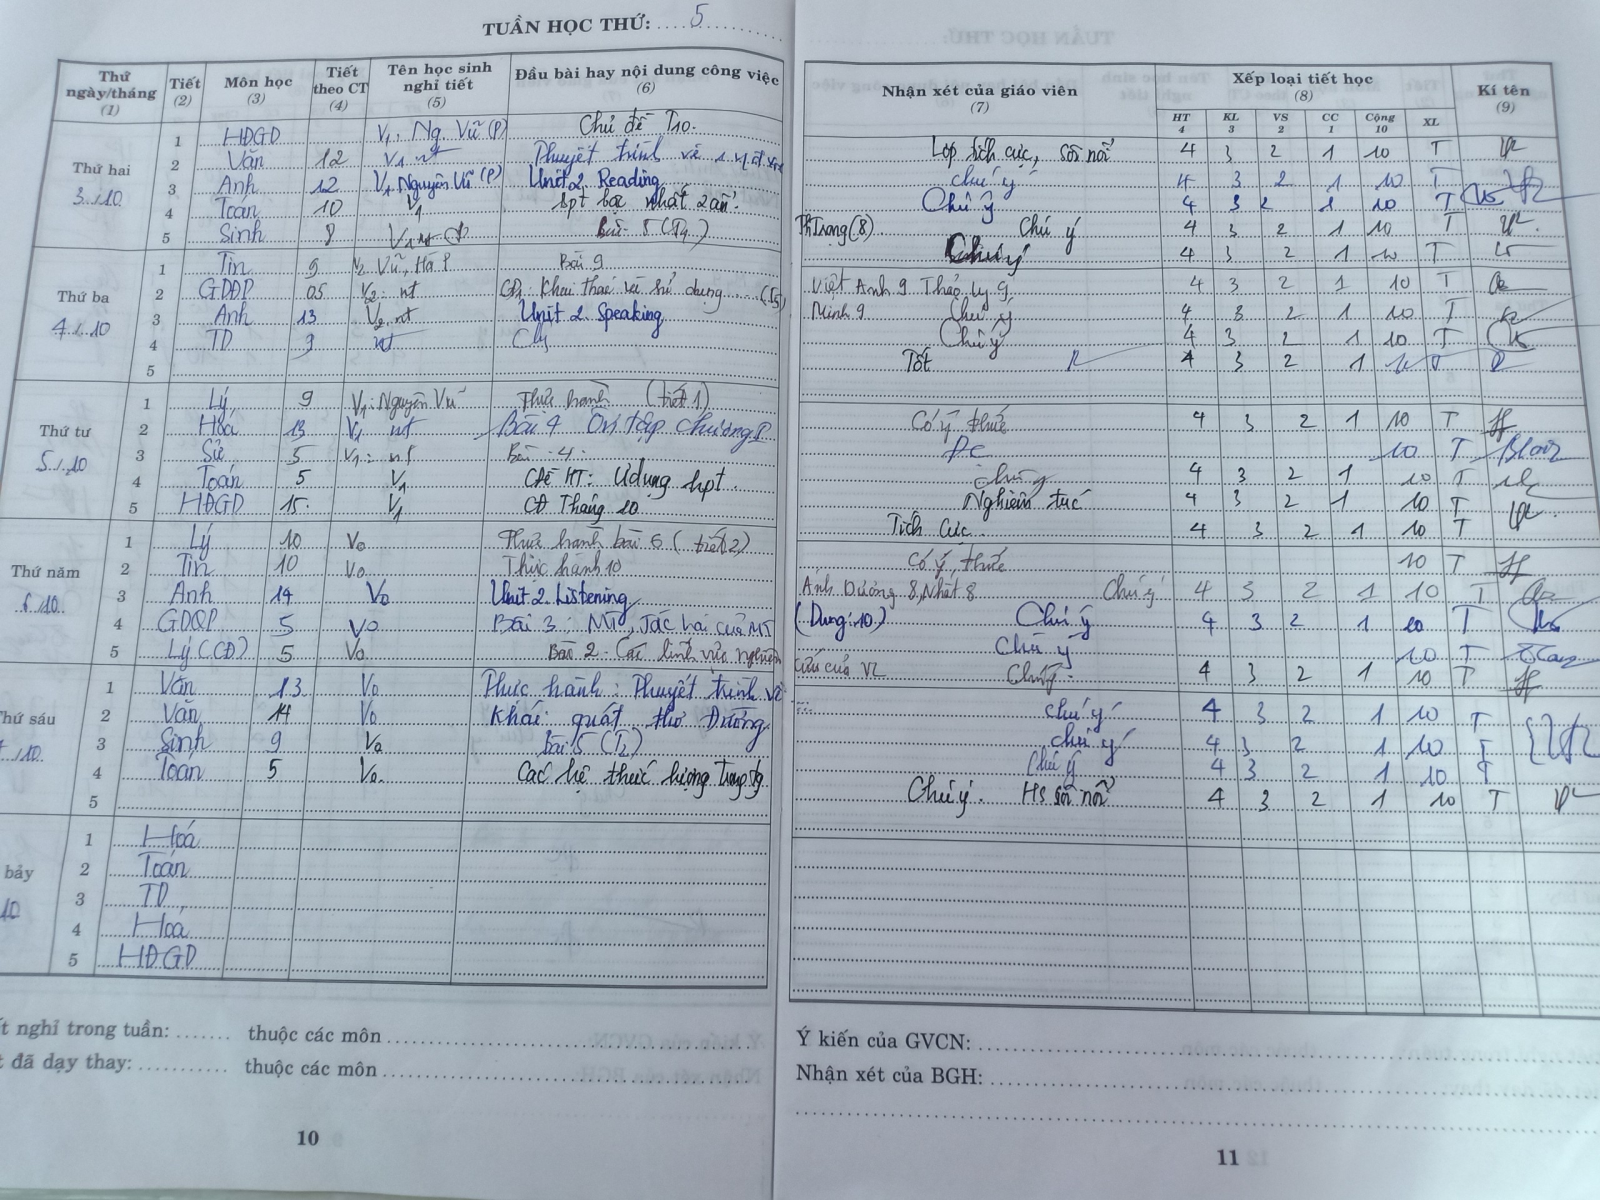 TUẦN HỌC THỨ: 5
Thứ ngày/tháng (1) Tiết (2) Môn học (3) Tiết theo CT (4) Tên học sinh nghỉ tiết (5) Đầu bài hay nội dung công việc (6)
Thứ hai 3/10
1 HĐGD V1, Ng. Vũ (P) Chủ đề T10.
2 Văn 12 V1 nt Thuyết trình về 1
3 Anh 12 V1 Nguyên Vũ (P) Unit 2 Reading
4 Toán 10 V1 bpt bậc nhất 2 ẩn.
5 Sinh 8 V1 nt Bài 5 (T1)
Thứ ba 4/10
1 Tin 9 V2 Vũ, Hà P Bài 9
2 GDĐP 05 V2: nt CĐ1: Khai thác và sử dụng (T5)
3 Anh 13 V2 nt Unit 2 Speaking
4 TD 9 nt Cly
5
Thứ tư 5/10
1 Lý 9 V1: Nguyên Vũ Thực hành (tiết 1)
2 Hoá 13 V1 nt Bài 4 Ôn tập Chương I
3 Sử 5 V1: nt Bài 4
4 Toán 5 V1 CĐ HT: Ưdụng hpt
5 HĐGD 15 V1 CĐ Tháng 10
Thứ năm 6/10
1 Lý 10 V0 Thực hành bài 6 (tiết 2)
2 Tin 10 V0 Thực hành 10
3 Anh 14 V0 Unit 2 Listening
4 GDQP 5 V0 Bài 3: MT, tác hại của MT
5 Lý (CĐ) 5 V0 Bài 2 - Các lĩnh vực nghiên
Thứ sáu 10
1 Văn 13 V0 Thực hành: Thuyết trình về
2 Văn 14 V0 Khái quát thơ Đường
3 Sinh 9 V0 Bài 5 (T2)
4 Toán 5 V0 Các hệ thức lượng trong tg
5
bảy 10
1 Hoá
2 Toán
3 TD
4 Hoá
5 HĐGD
t nghỉ trong tuần: ....... thuộc các môn
t đã dạy thay: ........... thuộc các môn
10
Nhận xét của giáo viên (7) Xếp loại tiết học (8) Kí tên (9)
HT 4 KL 3 VS 2 CC 1 Cộng 10 XL
Lớp tích cực, sôi nổi 4 3 2 1 10 T
chú ý 4 3 2 1 10 T
Chú ý 4 3 2 1 10 T
Th Trang (8) Chú ý 4 3 2 1 10 T
Chú ý 4 3 2 1 10 T
Việt Anh 9 Thảo, Ly 9, 4 3 2 1 10 T
Minh 9 Chú ý 4 3 2 1 10 T
Chú ý 4 3 2 1 10 T
Tốt 4 3 2 1
Có ý thức 4 3 2 1 10 T
10 T
Chú ý 4 3 2 1 10 T
Nghiêm túc 4 3 2 1 10 T
Tích cực 4 3 2 1 10 T
Có ý thức 10 T
Ánh Dương 8, Nhất 8 Chú ý 4 3 2 1 10 T
(Dung: 10) Chú ý 4 3 2 1 10 T
Chú ý 10 T
cứu của VL Chú ý 4 3 2 1 10 T
chú ý 4 3 2 1 10 T
chú ý 4 3 2 1 10 T
Chú ý 4 3 2 1 10 T
Chú ý. Hs sôi nổi 4 3 2 1 10 T
Ý kiến của GVCN:
Nhận xét của BGH:
11